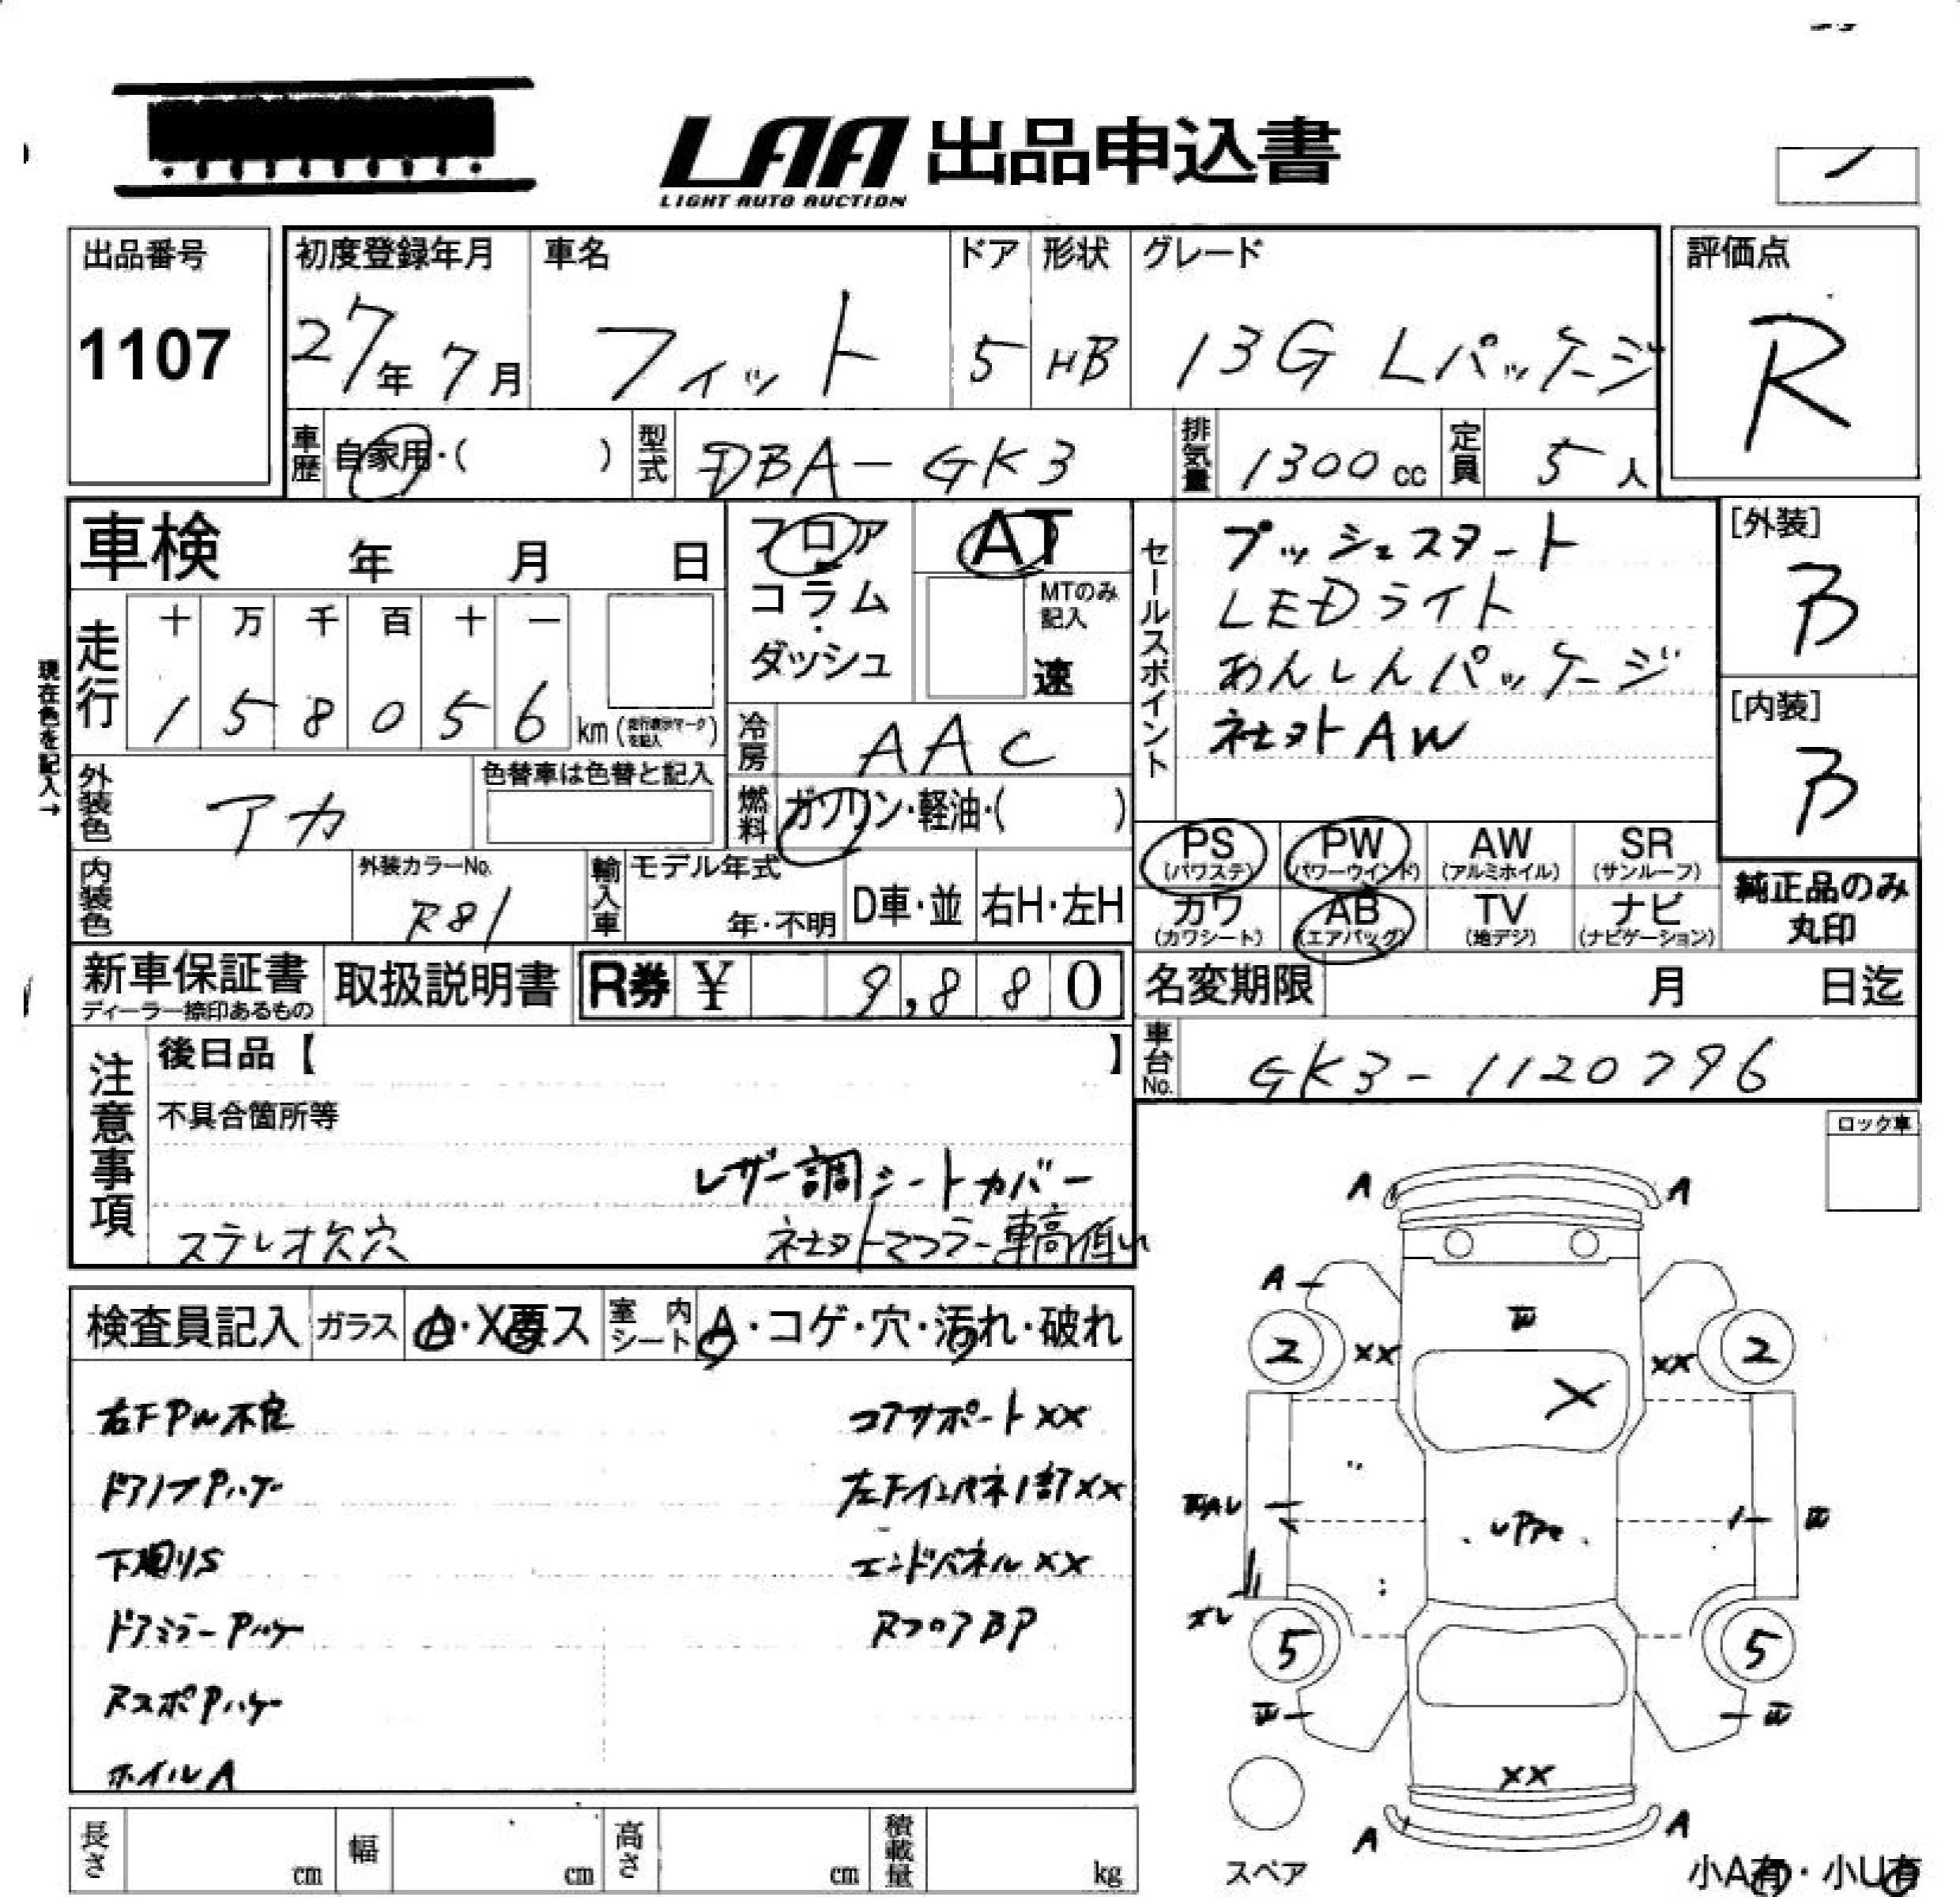 LAA 出品申込書
LIGHT AUTO AUCTION
出品番号
1107
初度登録年月
27年 7月
車名
フィット
ドア
5
形状
HB
グレード
13G Lパッケージ
評価点
R
車歴
自家用・( )
型式
DBA-GK3
排気量
1300 cc
定員
5 人
車検 年 月 日
フロア
コラム
・
ダッシュ
AT
MTのみ
記入
速
セールスポイント
プッシュスタート
LEDライト
あんしんパッケージ
社外AW
[外装]
B
[内装]
B
現在色を記入→
走行
十 万 千 百 十 一
1 5 8 0 5 6
km (走行表示マークを記入)
冷房
AAC
外装色
アカ
色替車は色替と記入
燃料
ガソリン・軽油・( )
PS
(パワステ)
PW
(パワーウインド)
AW
(アルミホイル)
SR
(サンルーフ)
カワ
(カワシート)
AB
(エアバッグ)
TV
(地デジ)
ナビ
(ナビゲーション)
純正品のみ
丸印
内装色
外装カラーNo.
R81
輸入車
モデル年式
年・不明
D車・並
右H・左H
新車保証書
ディーラー捺印あるもの
取扱説明書
R券 ¥ 9,880
名変期限 月 日迄
車台No.
GK3-1120796
注意事項
後日品【 】
不具合箇所等
レザー調シートカバー
ステレオ欠穴 社外マフラー車高低い
ロック車
検査員記入
ガラス
A・X要ス
室内シート
A・コゲ・穴・汚れ・破れ
右FPW不良 コアサポートXX
ドアノブPハゲ 左FインパネXX
下廻りS エンドパネルXX
ドアミラーPハゲ RフロアBP
RスポPハゲ
ホイルA
A A
A
W
2 XX XX 2
X
5 5
XX
A A
スペア
小A有・小U有
長さ cm
幅 cm
高さ cm
積載量 kg